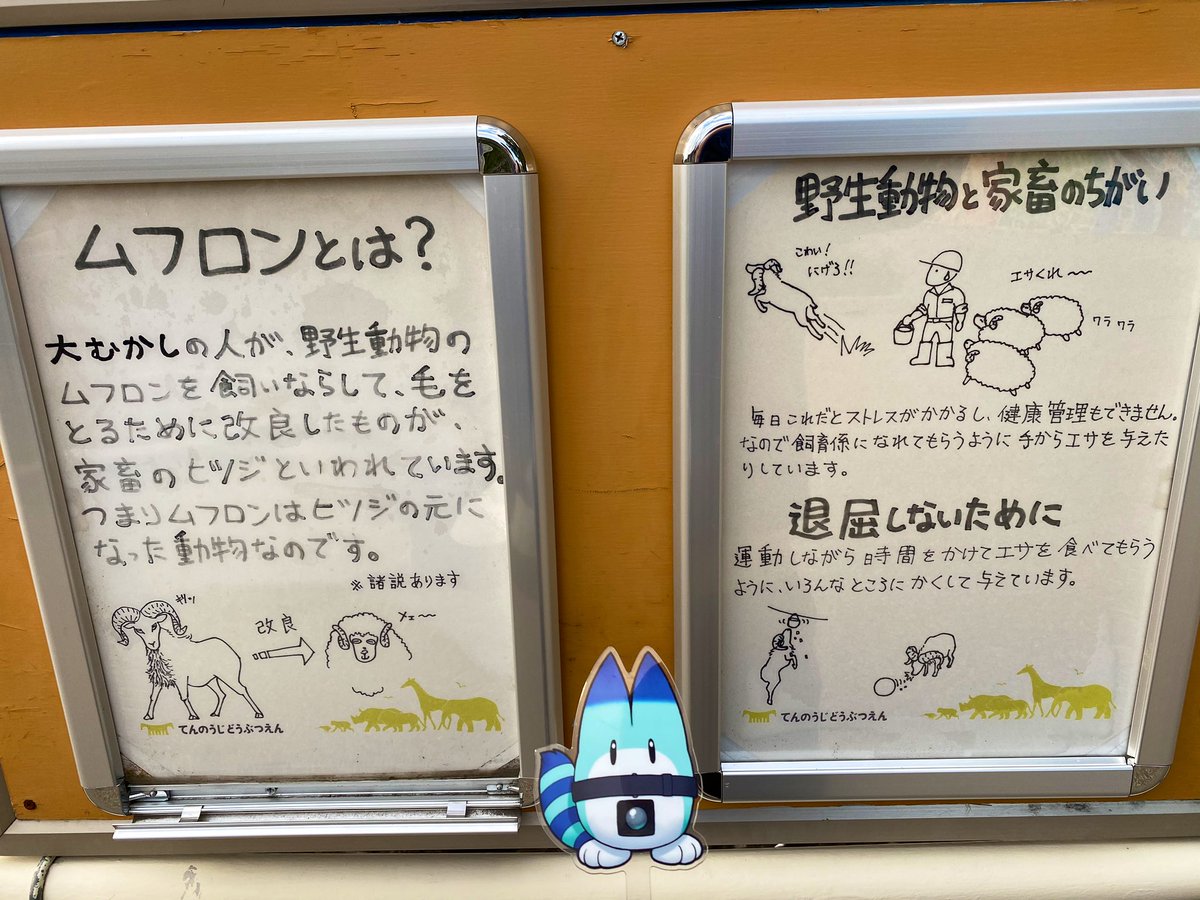 ムフロンとは?
大むかしの人が、野生動物の
ムフロンを飼いならして、毛を
とるために改良したものが、
家畜のヒツジといわれています。
つまりムフロンはヒツジの元に
なった動物なのです。
※諸説あります
改良
メェ〜
てんのうじどうぶつえん
野生動物と家畜のちがい
こわい!
にげろ!!
エサくれ〜
ワラワラ
毎日これだとストレスがかかるし、健康管理もできません。
なので飼育係になれてもらうように手からエサを与えた
りしています。
退屈しないために
運動しながら時間をかけてエサを食べてもらう
ように、いろんなところにかくして与えています。
てんのうじどうぶつえん